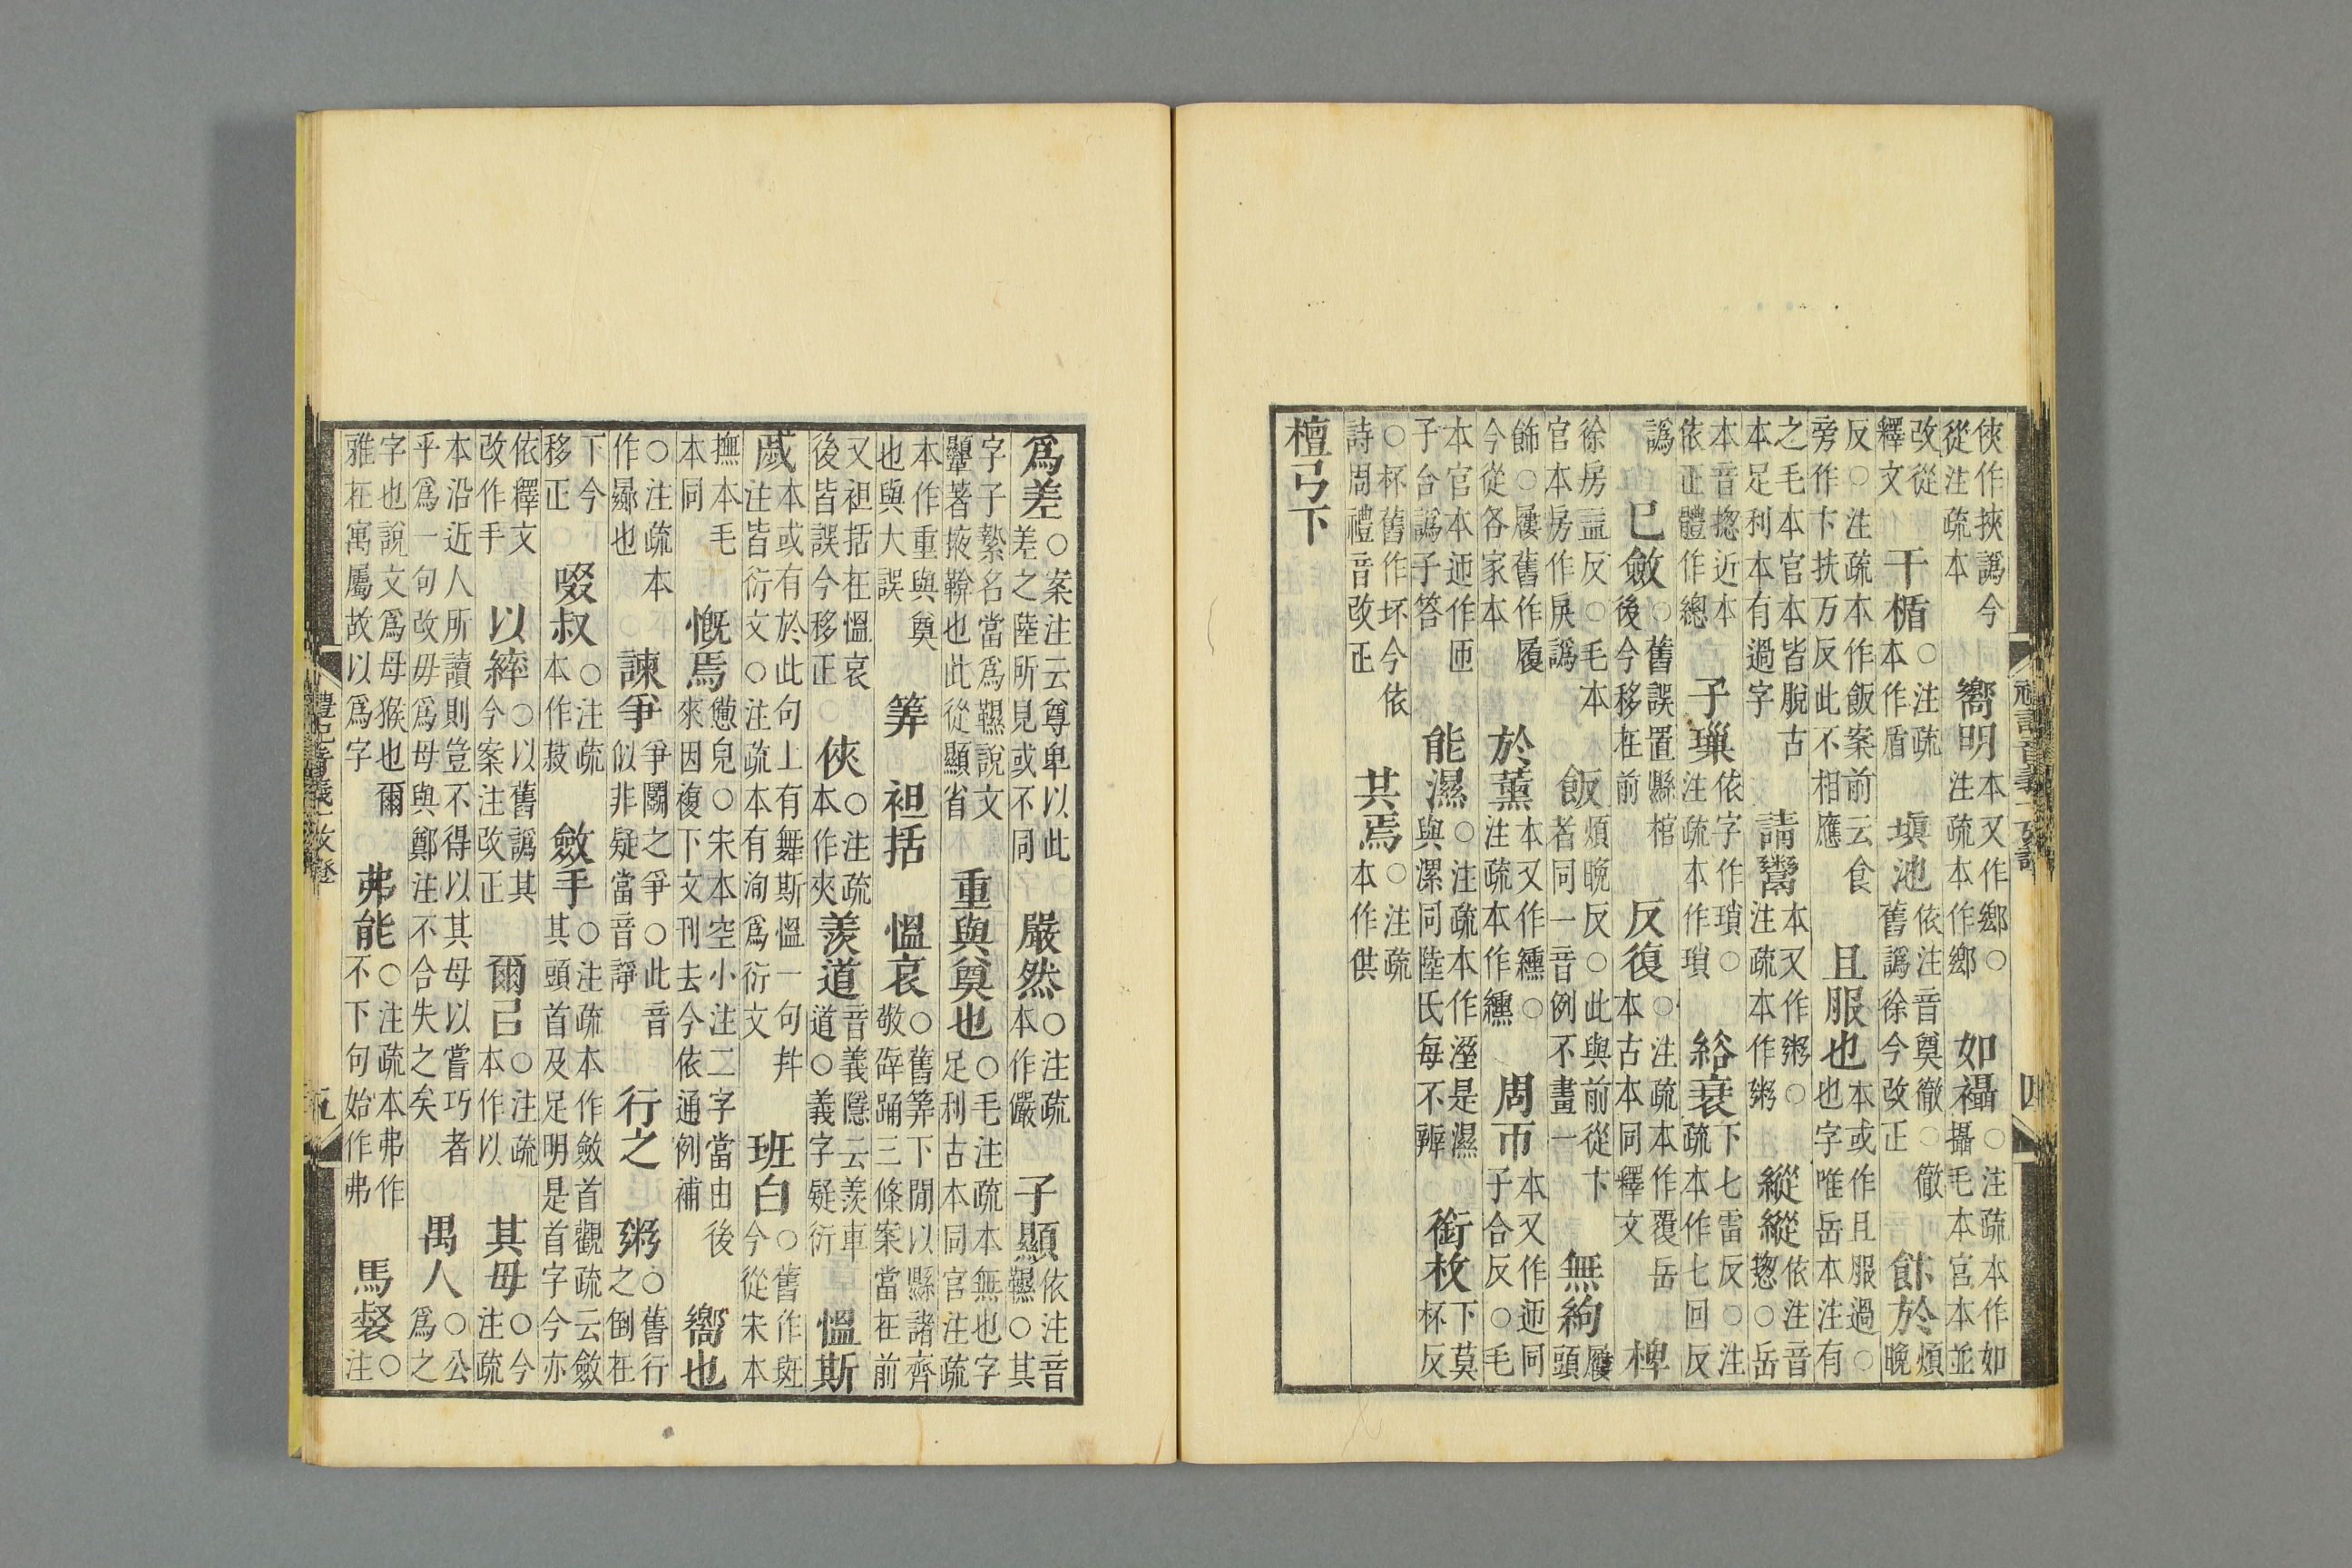 禮記音義一攷證 四
俠作挾譌今從注疏本 嚮明本又作鄉○注疏本作鄉 如襵○注疏本作如攝毛本宮本並
改從釋文 干楯○注疏本作盾 填池依注音奠徹○徹舊譌徐今改正 飰於煩晚
反○注疏本作飯案前云食旁作卞扶万反此不相應 且服也本或作且服過○也字唯岳本注有
之毛本官本皆脫古本足利本有過字 請鬻本又作粥○注疏本作粥 縱縱依注音揔○岳
本音揔近本依正體作總 子璅依字作瑣○注疏本作瑣 綌衰下七雷反○注疏本作七回反
譌 已斂○舊誤置縣棺後今移在前 反復○注疏本作覆岳本古本同釋文 椑
徐房益反○毛本官本房作戾譌 飯煩晚反○此與前從卞者同一音例不畫一 無絇屨頭
飾○屨舊作履今從各家本 於薰本又作纁○注疏本作纁 周帀本又作迊同子合反○毛
本官本迊作匝子台譌子答 能濕○注疏本作溼是濕與漯同陸氏每不辨 銜枚下莫杯反
○杯舊作坏今依詩周禮音改正 其焉○注疏本作供
檀弓下
爲差○案注云尊卑以此差之陸所見或不同 嚴然○注疏本作儼 子顯依注音韅○其
字子縶名當爲韅說文顯著掖鞥也此從顯省 重與奠也○毛注疏本無也字足利古本同官注疏
本作重與奠也與大誤 筭 袒括 慍哀○舊筭下閒以縣諸齊敬辟踊三條案當在前
又袒括在慍哀後皆誤今移正 俠○注疏本作夾 羨道音義隱云羨車道○義字疑衍 慍斯
戚本或有於此句上有舞斯慍一句幷注皆衍文○注疏本有洵爲衍文 班白○舊作斑今從宋本
撫本毛本同 慨焉憊皃○宋本空小注二字當由後來因複下文刊去今依通例補 嚮也
○注疏本作曏也 諫爭爭鬭之爭○此音似非疑當音諍 行之 粥○舊行之倒在
下今移正 啜叔○注疏本作菽 斂手○注疏本作斂首觀疏云斂其頭首及足明是首字今亦
依釋文改作手 以綷○以舊譌其今案注改正 爾已○注疏本作以 其毋○今注疏
本沿近人所讀則豈不得以其母以嘗巧者乎爲一句改毋爲母與鄭注不合失之矣 禺人○公爲之
字也說文爲母猴也爾雅在寓屬故以爲字 弗能○注疏本弗作不下句始作弗 馬䝰○注
禮記音義一攷證 五